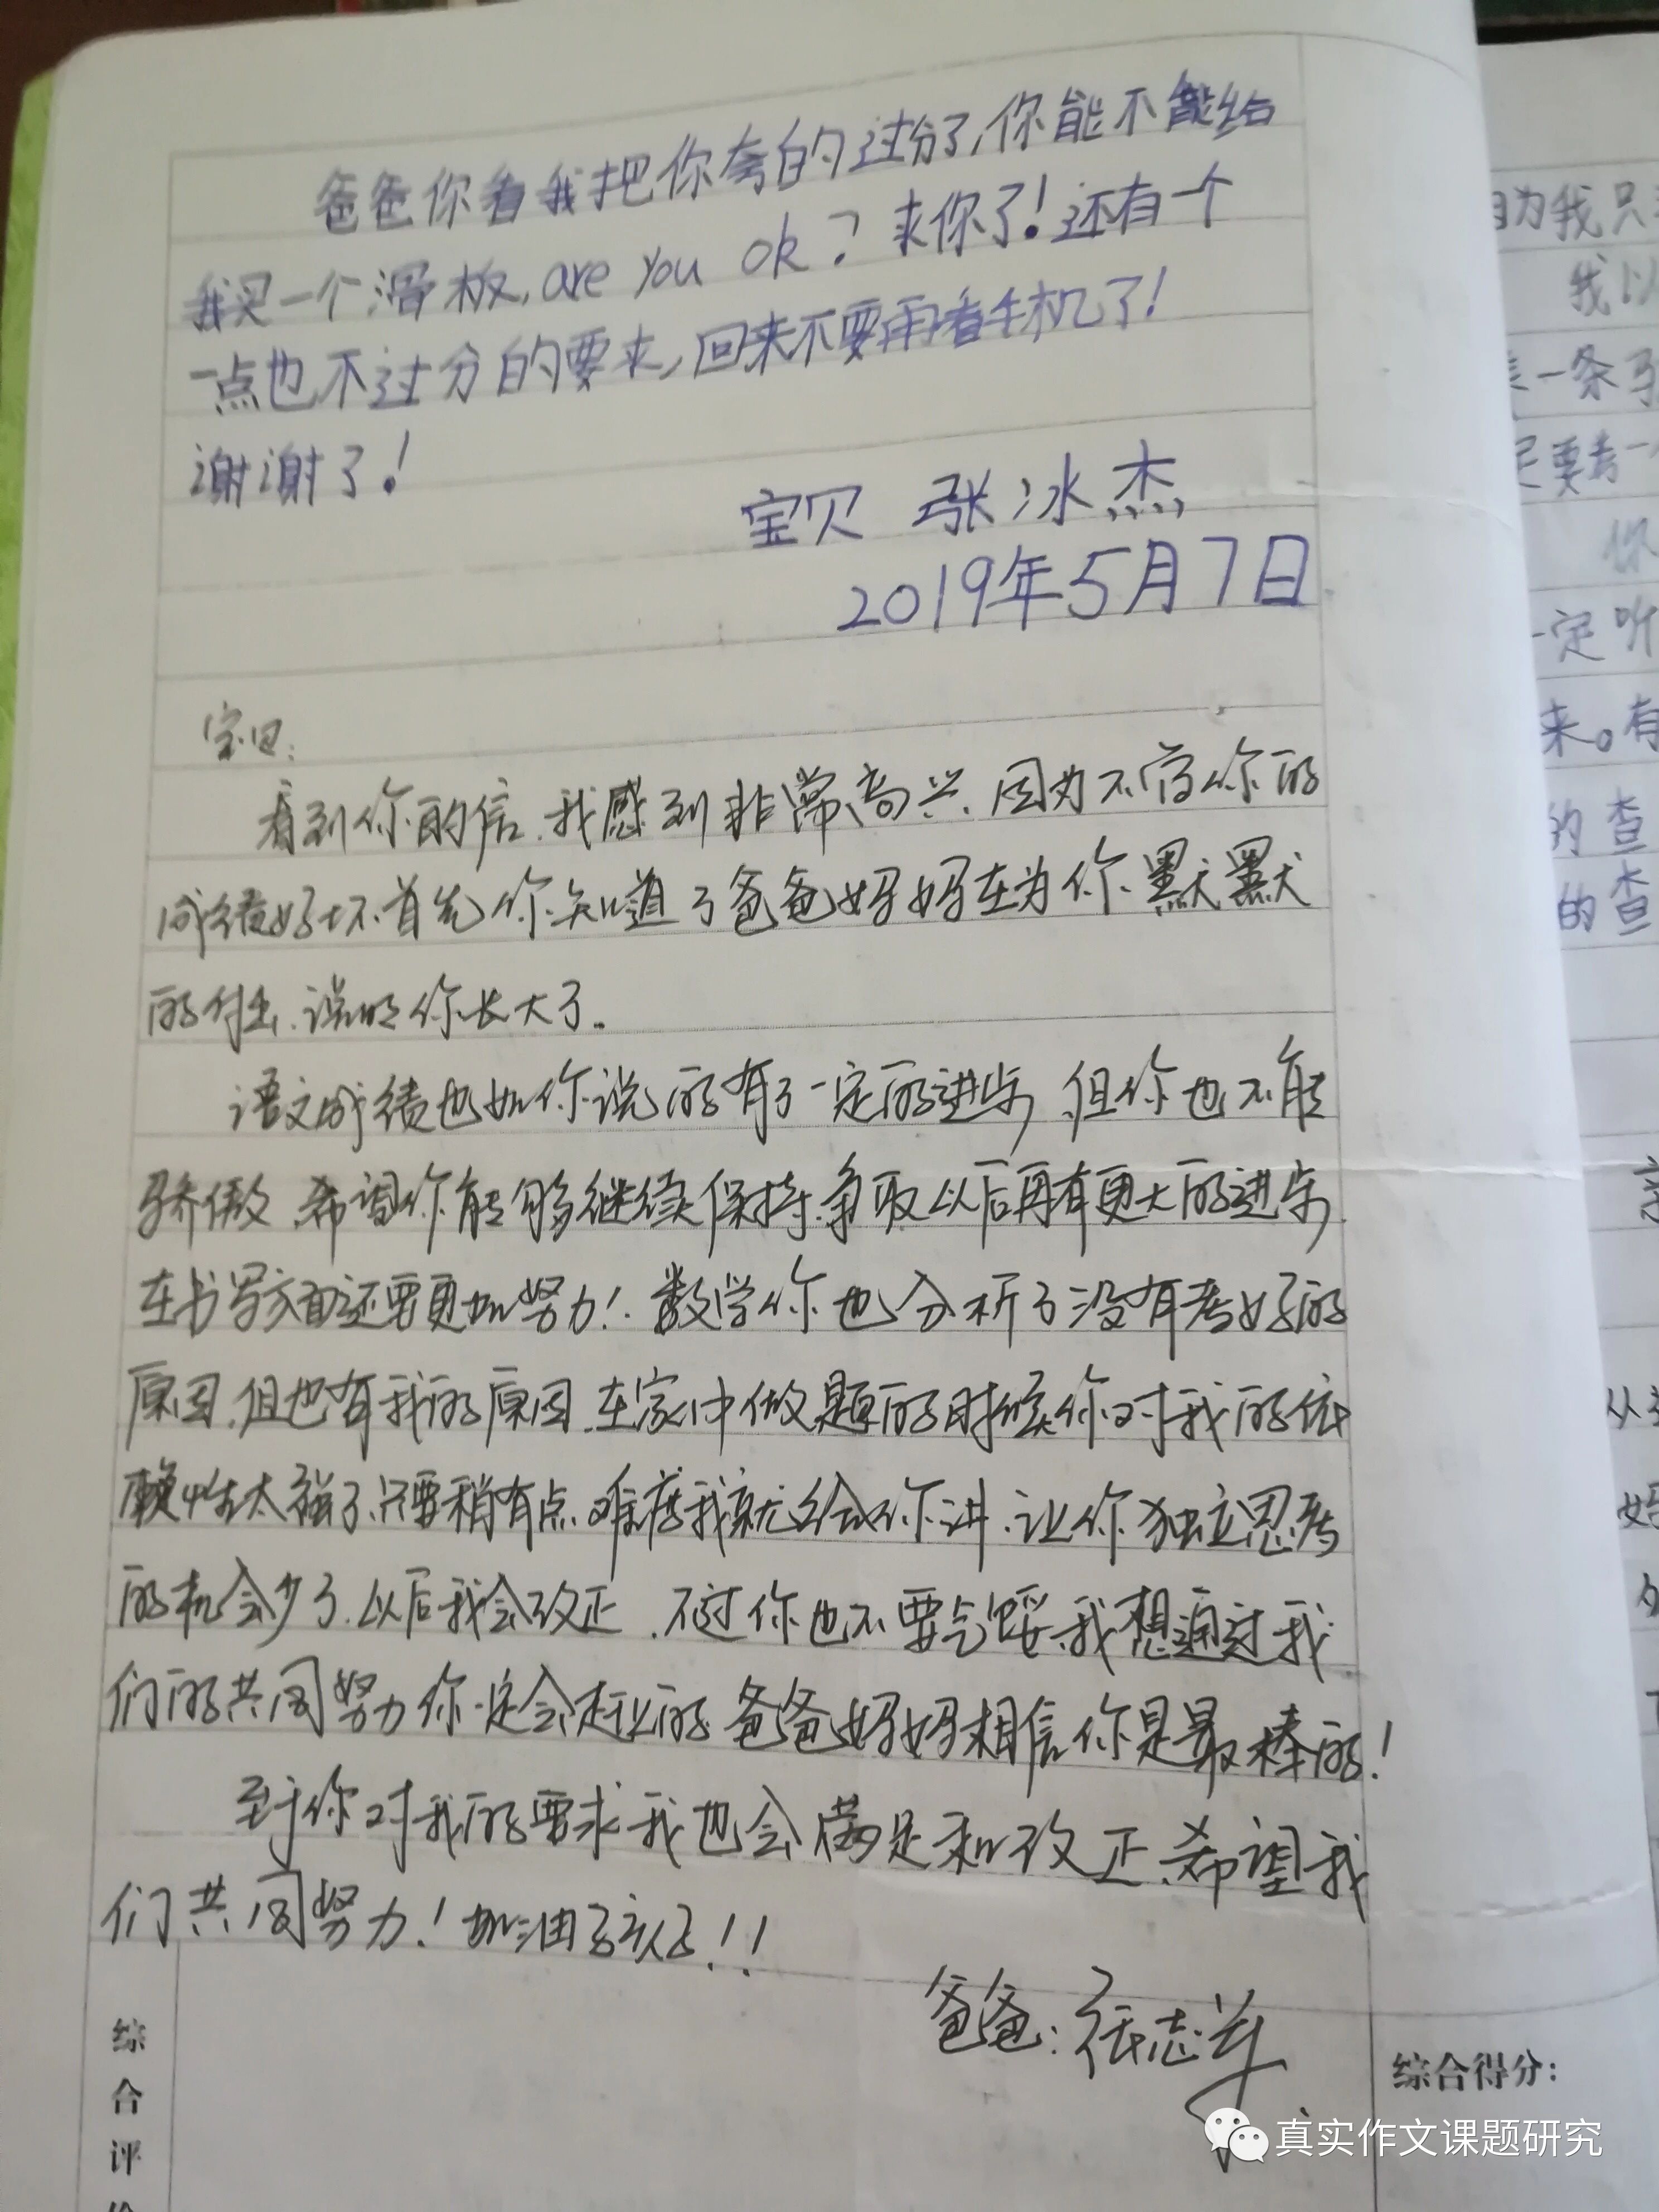 爸爸你看我把你夸的过分了,你能不能给
我买一个滑板,are you ok?求你了!还有一个
一点也不过分的要求,回来不要再看手机了!
谢谢了!
宝贝 张冰杰
2019年5月7日
宝贝:
看到你的信、我感到非常高兴、因为不管你的
成绩好坏首先你知道了爸爸妈妈在为你默默
的付出、说明你长大了。
语文成绩也如你说的有了一定的进步,但你也不能
骄傲、希望你能够继续保持、争取以后再有更大的进步、
在书写方面还要更加努力!数学你也分析了没有考好的
原因、但也有我的原因、在家中做题的时候你对我的依
赖性太强了、只要稍有点难度我就给你讲、让你独立思考
的机会少了、以后我会改正、不过你也不要气馁、我想通过我
们的共同努力你一定会赶上的、爸爸妈妈相信你是最棒的!
至于你对我的要求我也会满足和改正、希望我
们共同努力!加油孩子!!
爸爸:张志
综合评价
综合得分:
真实作文课题研究
为我只
我以
一条
要考一
你
一定听
来。有
的查
的查